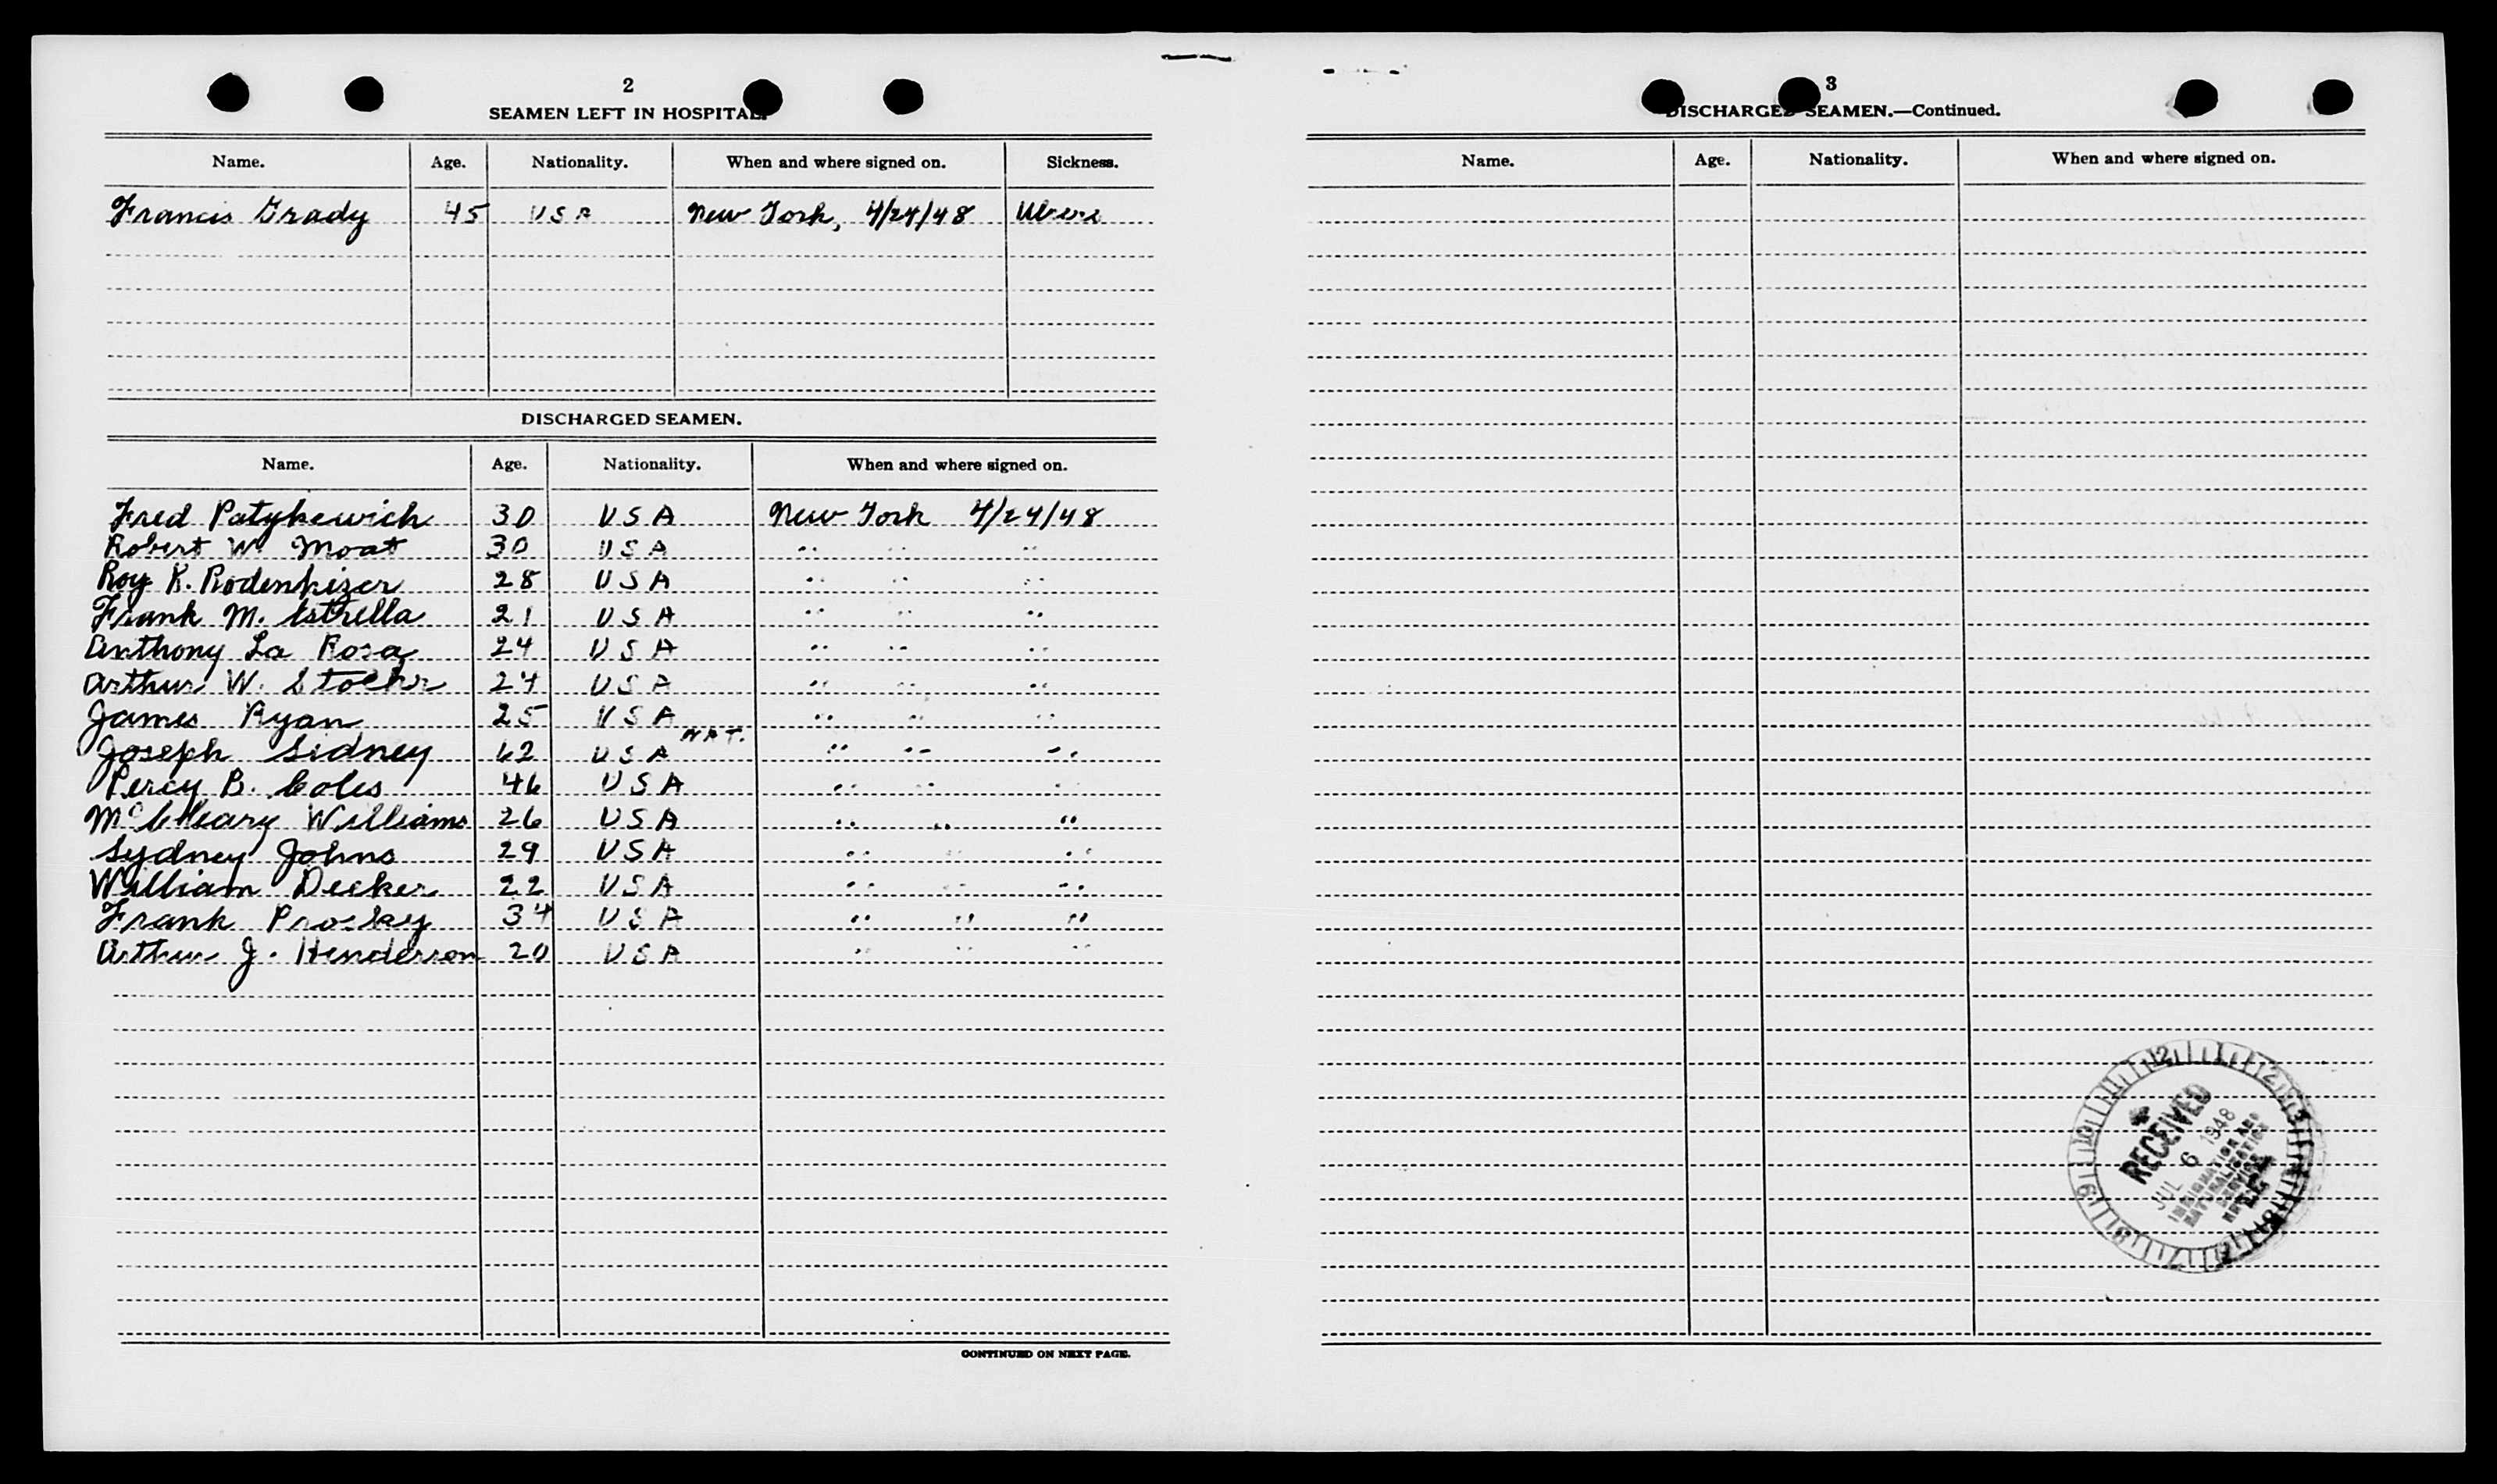 2
SEAMEN LEFT IN HOSPITAL.
Name. Age. Nationality. When and where signed on. Sickness.
Francis Grady 45 USA New York, 4/24/48
DISCHARGED SEAMEN.
Name. Age. Nationality. When and where signed on.
Fred Patykewich 30 USA New York 4/24/48
Robert W. Moat 30 USA " " "
Roy K. Rodenhizer 28 USA " " "
Frank M. Estrella 21 USA " " "
Anthony La Rosa 24 USA " " "
Arthur W. Stoehr 24 USA " " "
James Ryan 25 USA " " "
Joseph Sidney 62 USA NAT. " " "
Percy B. Coles 46 USA " " "
Williams 26 USA " " "
Sydney Johns 29 USA " " "
William Decker 22 USA " " "
Frank 34 USA " " "
Arthur J. Henderson 20 USA " " "
CONTINUED ON NEXT PAGE.
3
DISCHARGED SEAMEN.—Continued.
Name. Age. Nationality. When and where signed on.
RECEIVED
JUL 6 1948
IMMIGRATION AND
NATURALIZATION
SERVICE